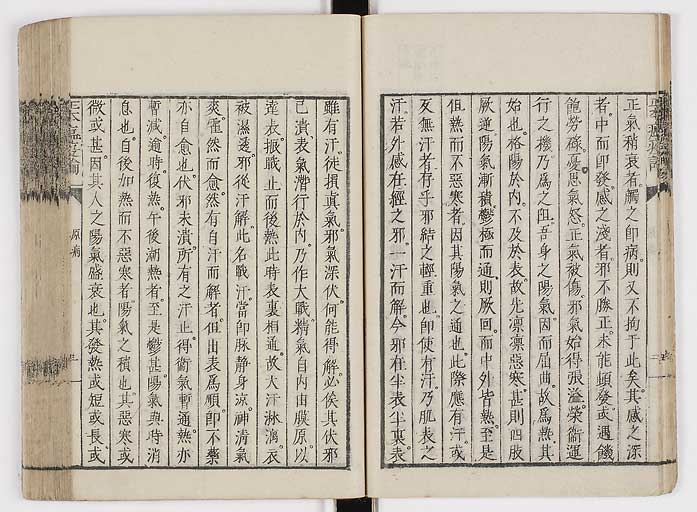 正氣稍衰者。觸之即病。則又不拘于此矣。其感之深
者。中而即發。感之淺者。邪不勝正。未能頓發。或遇饑
飽勞碌。憂思氣怒。正氣被傷。邪氣始得張溢。榮衞運
行之機。乃爲之阻。吾身之陽氣。因而屈曲。故爲熱。其
始也。格陽於内。不及於表。故先凛凛惡寒。甚則四肢
厥逆。陽氣漸積。鬱極而通。則厥回。而中外皆熱。至是
但熱而不惡寒者。因其陽氣之通也。此際應有汗。或
反無汗者。存乎邪結之輕重也。即使有汗。乃肌表之
汗。若外感在經之邪。一汗而解。今邪在半表半裏。表
雖有汗。徒損眞氣。邪氣深伏。何能得解。必俟其伏邪
已潰。表氣潛行於内。乃作大戰。精氣自内由膜原以
達表。振戰止而後熱。此時表裏相通。故大汗淋漓。衣
被濕透。邪從汗解。此名戰汗。當即脉靜身凉。神清氣
爽。霍然而愈。然有自汗而解者。但出表爲順。即不藥
亦自愈也。伏邪未潰。所有之汗。止得衞氣暫通。熱亦
暫減。逾時復熱。午後潮熱者。至是鬱甚。陽氣與時消
息也。自後加熱而不惡寒者。陽氣之積也。其惡寒或
微或甚。因其人之陽氣盛衰也。其發熱或短或長。或
原病